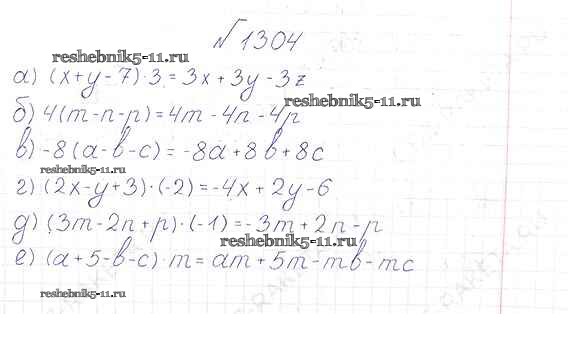 №1304
reshebnik5-11.ru
а) (x+y-7)·3=3x+3y-3z
reshebnik5-11.ru
б) 4(m-n-p)=4m-4n-4p
в) -8(a-b-c)=-8a+8b+8c
reshebnik5-11.ru
г) (2x-y+3)·(-2)=-4x+2y-6
д) (3m-2n+p)·(-1)=-3m+2n-p
reshebnik5-11.ru
е) (a+5-b-c)·m=am+5m-mb-mc
reshebnik5-11.ru